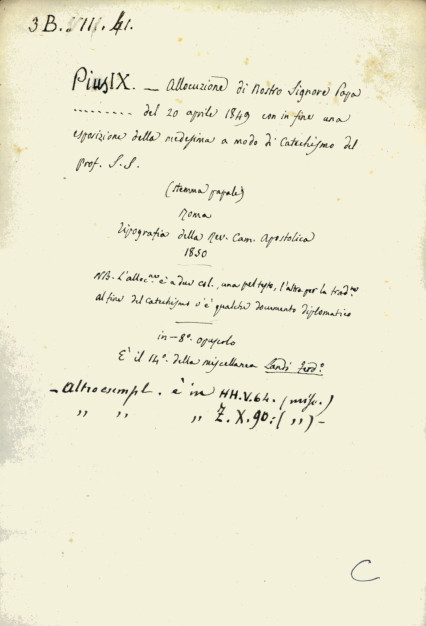 3 B. VIII. 41.
Pius IX. — Allocuzione di Nostro Signore Papa
......... del 20 aprile 1849 con in fine una
esposizione della medesima a modo di Catechismo del
prof. S. S.
(stemma papale)
Roma
Tipografia della Rev. Cam. Apostolica
1850
NB. L'alloc.ne è a due col., una pel testo, l'altra per la trad.ne
al fine del Catechismo v'è qualche documento diplomatico
in-8° opuscolo
È il 14° della miscellanea Landi Ferd.°
— Altro esempl. è in HH.V.64. (misc.)
" " " Z. X. 90. ( " ) —
C